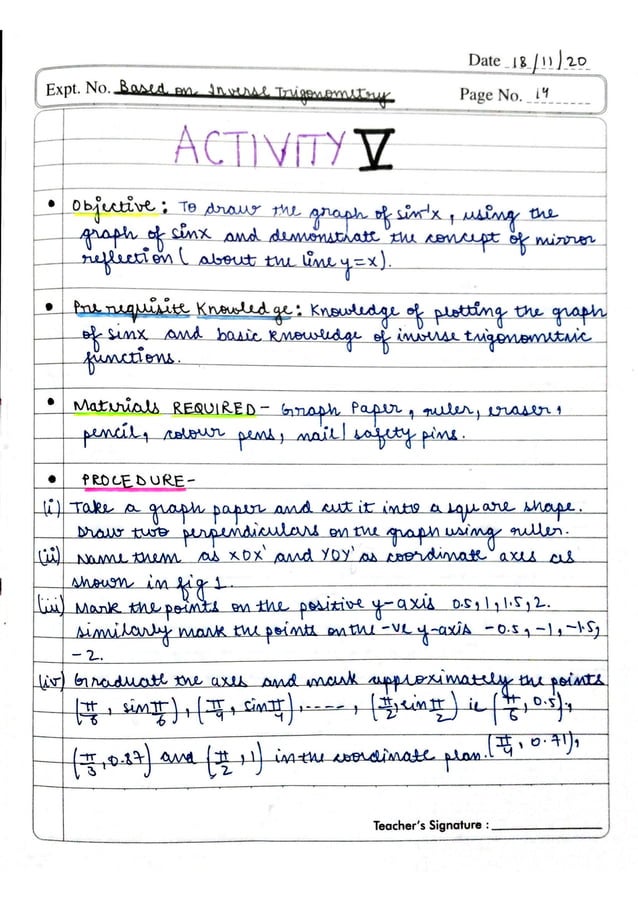 Date 18/11/20
Expt. No. Based on Inverse Trigonometry
Page No. 14
ACTIVITY V
• Objective : To draw the graph of sin⁻¹x, using the
graph of sinx and demonstrate the concept of mirror
reflection ( about the line y=x).
• Pre requisite Knowledge : Knowledge of plotting the graph
of sinx and basic knowledge of inverse trigonometric
functions.
• Materials REQUIRED - Graph Paper, ruler, eraser,
pencil, colour pens, nail / safety pins.
• PROCEDURE -
(i) Take a graph paper and cut it into a square shape.
Draw two perpendiculars on the graph using ruller.
(ii) Name them as XOX' and YOY' as coordinate axes as
shown in fig 1.
(iii) Mark the points on the positive y-axis 0.5, 1, 1.5, 2.
Similarly mark the points on the -ve y-axis -0.5, -1, -1.5,
-2.
(iv) Graduate the axes and mark approximately the points
(π/6, sin π/6), (π/4, sin π/4), ----, (π/2, sin π/2) ie (π/6, 0.5),
(π/3, 0.87) and (π/2, 1) in the coordinate plan. (π/4, 0.71),
Teacher's Signature :